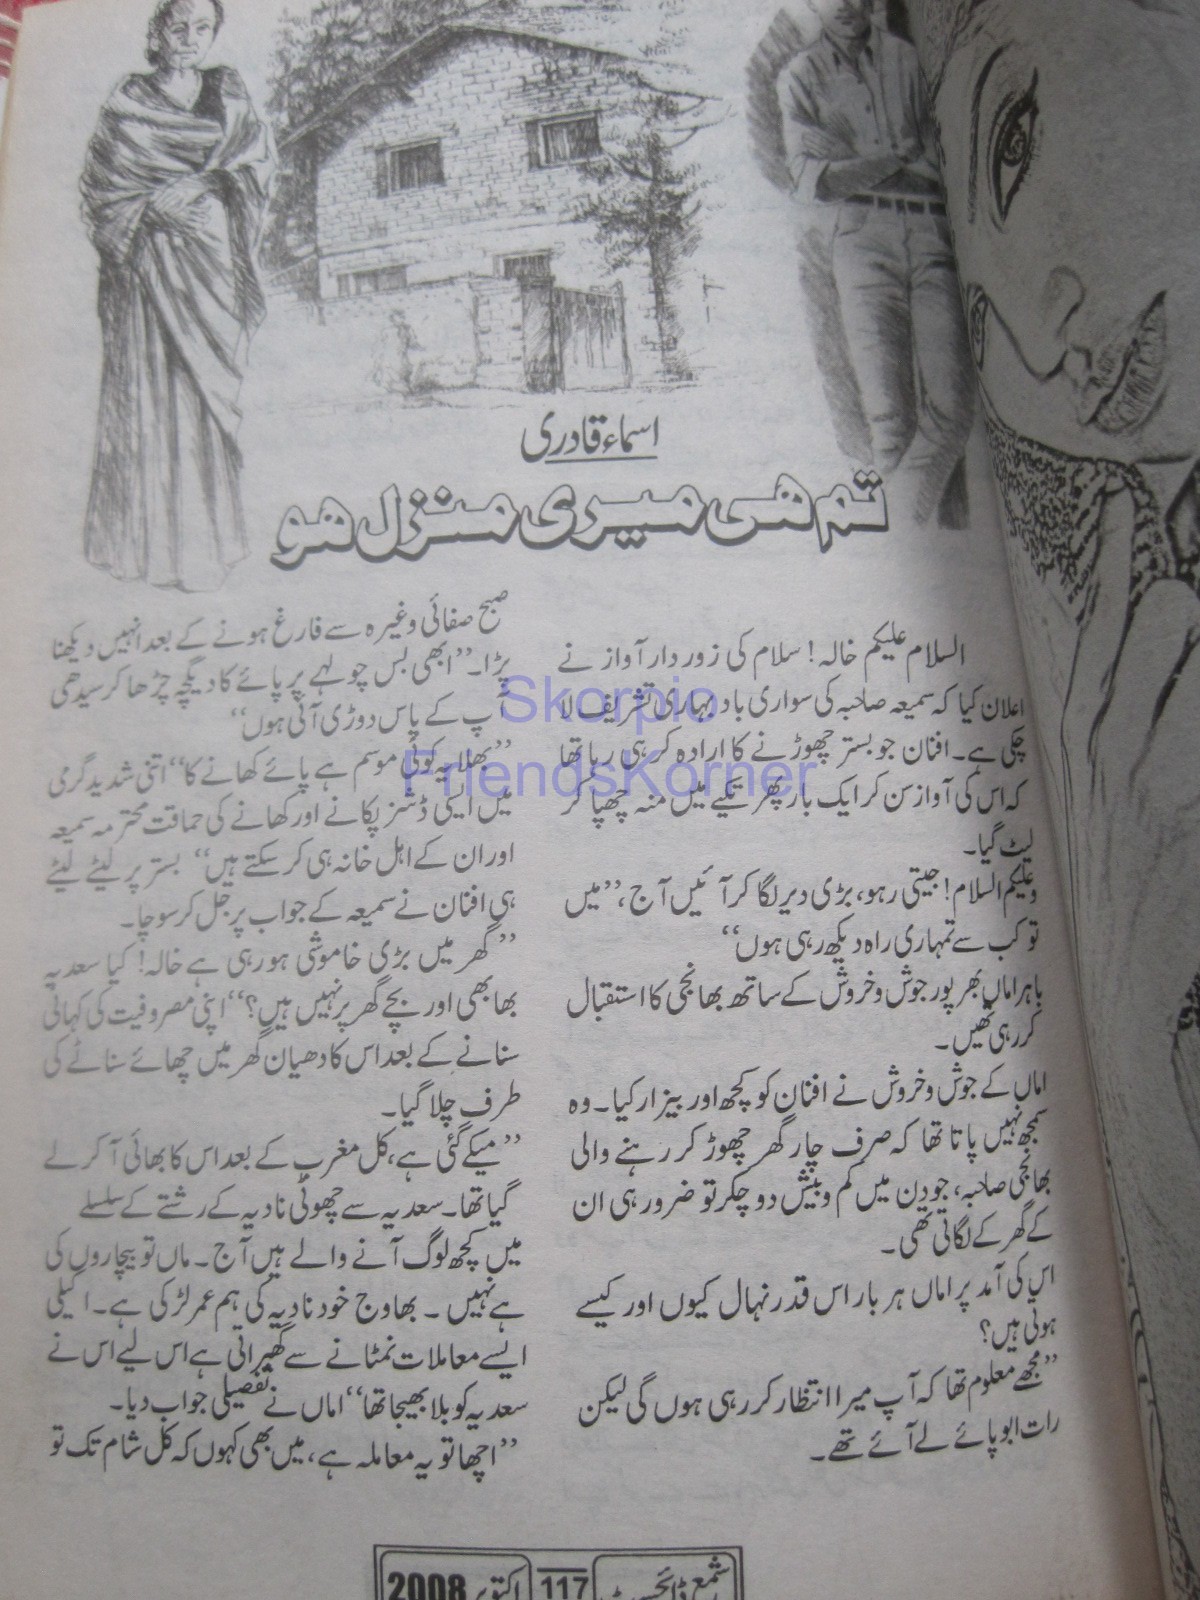 اسماء قادری
تم ہی میری منزل ہو
السلام علیکم خالہ! سلام کی زوردار آواز نے
اعلان کیا کہ سمیعہ صاحبہ کی سواری باد بہاری تشریف لا
چکی ہے۔ افنان جو بستر چھوڑنے کا ارادہ کر ہی رہا تھا
کہ اس کی آواز سن کر ایک بار پھر تکیے میں منہ چھپا کر
لیٹ گیا۔
وعلیکم السلام! جیتی رہو، بڑی دیر لگا کر آئیں آج، ”میں
تو کب سے تمہاری راہ دیکھ رہی ہوں“
باہر اماں بھرپور جوش و خروش کے ساتھ بھانجی کا استقبال
کر رہی تھیں۔
اماں کے جوش و خروش نے افنان کو کچھ اور بیزار کیا۔ وہ
سمجھ نہیں پاتا تھا کہ صرف چار گھر چھوڑ کر رہنے والی
بھانجی صاحبہ، جو دن میں کم و بیش دو چکر تو ضرور ہی ان
کے گھر کے لگاتی تھی۔
اس کی آمد پر اماں ہر بار اس قدر نہال کیوں اور کیسے
ہوتی ہیں؟
”مجھے معلوم تھا کہ آپ میرا انتظار کر رہی ہوں گی لیکن
رات ابو پائے لے آئے تھے۔
صبح صفائی وغیرہ سے فارغ ہونے کے بعد انہیں دیکھنا
پڑا۔”ابھی بس چولہے پر پائے کا دیگچہ چڑھا کر سیدھی
آپ کے پاس دوڑی آئی ہوں“
”بھلا یہ کوئی موسم ہے پائے کھانے کا“ اتنی شدید گرمی
میں ایسی ڈشز پکانے اور کھانے کی حماقت محترمہ سمیعہ
اور ان کے اہل خانہ ہی کر سکتے ہیں“ بستر پر لیٹے لیٹے
ہی افنان نے سمیعہ کے جواب پر جل کر سوچا۔
”گھر میں بڑی خاموشی ہو رہی ہے خالہ! کیا سعدیہ
بھابھی اور بچے گھر پر نہیں ہیں؟“ اپنی مصروفیت کی کہانی
سنانے کے بعد اس کا دھیان گھر میں چھائے سناٹے کی
طرف چلا گیا۔
”میکے گئی ہے، کل مغرب کے بعد اس کا بھائی آ کر لے
گیا تھا۔ سعدیہ سے چھوٹی نادیہ کے رشتے کے سلسلے
میں کچھ لوگ آنے والے ہیں آج۔ ماں تو بیچاروں کی
ہے نہیں۔ بھاوج خود نادیہ کی ہم عمر لڑکی ہے۔ اکیلی
ایسے معاملات نمٹانے سے گھبراتی ہے اس لیے اس نے
سعدیہ کو بلا بھیجا تھا“ اماں نے تفصیلی جواب دیا۔
”اچھا تو یہ معاملہ ہے، میں بھی کہوں کہ کل شام تک تو
Skorpio
FriendsKorner
شعاع ڈائجسٹ 117 اکتوبر 2008